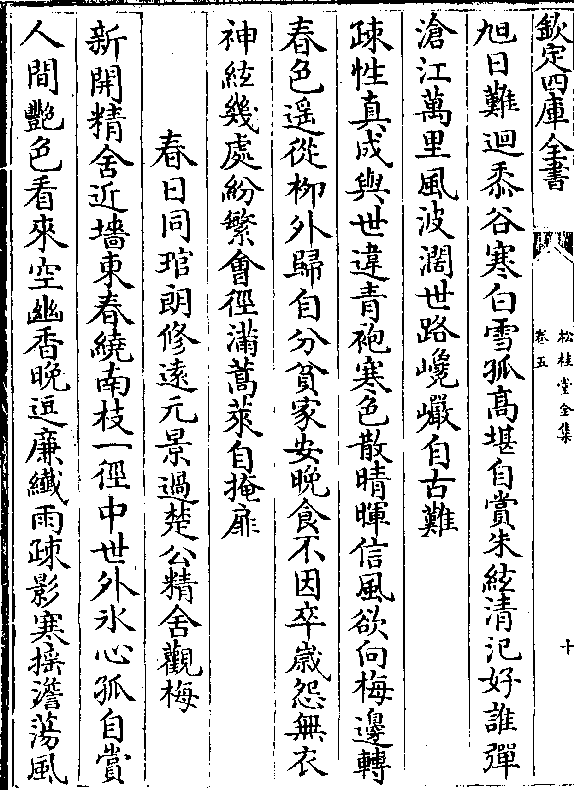 欽定四庫全書
松桂堂全集
卷五
十
旭日難迴黍谷寒白雪孤髙堪自賞朱絃清汜好誰彈
滄江萬里風波濶世路巉巗自古難
疎性真成與世違青袍寒色散晴暉信風欲向梅邊轉
春色遥從栁外歸自分貧家安晚食不因卒嵗怨無衣
神絃幾處紛繁會徑滿蒿萊自掩扉
春日同琯朗修逺元景過楚公精舍觀梅
新開精舍近墻東春繞南枝一徑中世外氷心孤自賞
人間艷色看來空幽香晚逗亷纎雨疎影寒揺澹蕩風